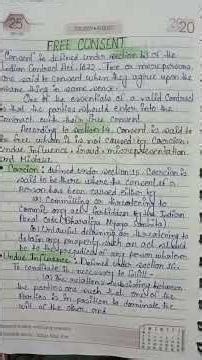 25
20
FREE CONSENT
"Consent" is defined under section 13 of the
Indian Contract Act, 1872. Two or more persons
are said to consent when they agree upon the
same thing in same sense.
One of the essentials of a valid Contract
is that the parties should enter into the
Contract with their free Consent.
According to section 14, Consent is said to
be free when it is not caused by Coercion,
Undue Influence, Fraud, misrepresentation
and Mistake.
Coercion: defined under section 15. Coercion is
said to be there where the consent of a
Person has been caused either by
(a) Committing or threatening to
Commit any act forbidden by the Indian
Penal Code
(b) Unlawful detaining or threatening to
detain any property, such an act
to the prejudice of any person whatever
Undue Influence: Defined under section 16.
To constitute it necessary to
(a) The relations subsisting between
the parties are such that one of the
Parties is in position to dominate the
will of the other and